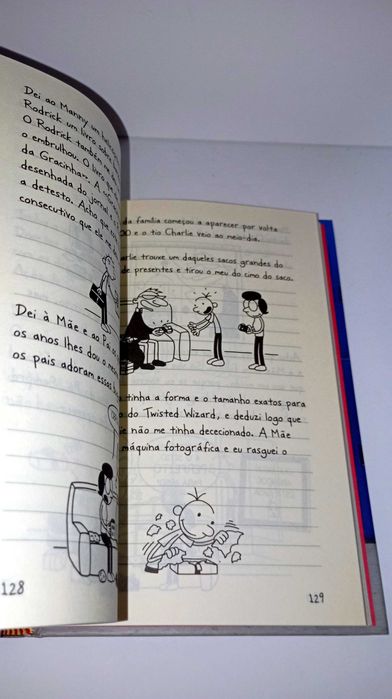 Dei ao Manny um
Rodrick um livro sobre
O Rodrick também
o embrulhou. O livro
da Gracinham. A
desenhada do jornal
a detesto. Acho que
consecutivo que ele me
Dei à Mãe e ao Pai
os anos lhes dou o
os pais adoram essas
128
da família começou a aparecer por volta
00 e o tio Charlie veio ao meio-dia.
arlie trouxe um daqueles sacos grandes do
de presentes e tirou o meu do cimo do saco.
tinha a forma e o tamanho exatos para
do Twisted Wizard, e deduzi logo que
ie não me tinha dececionado. A Mãe
máquina fotográfica e eu rasguei o
129